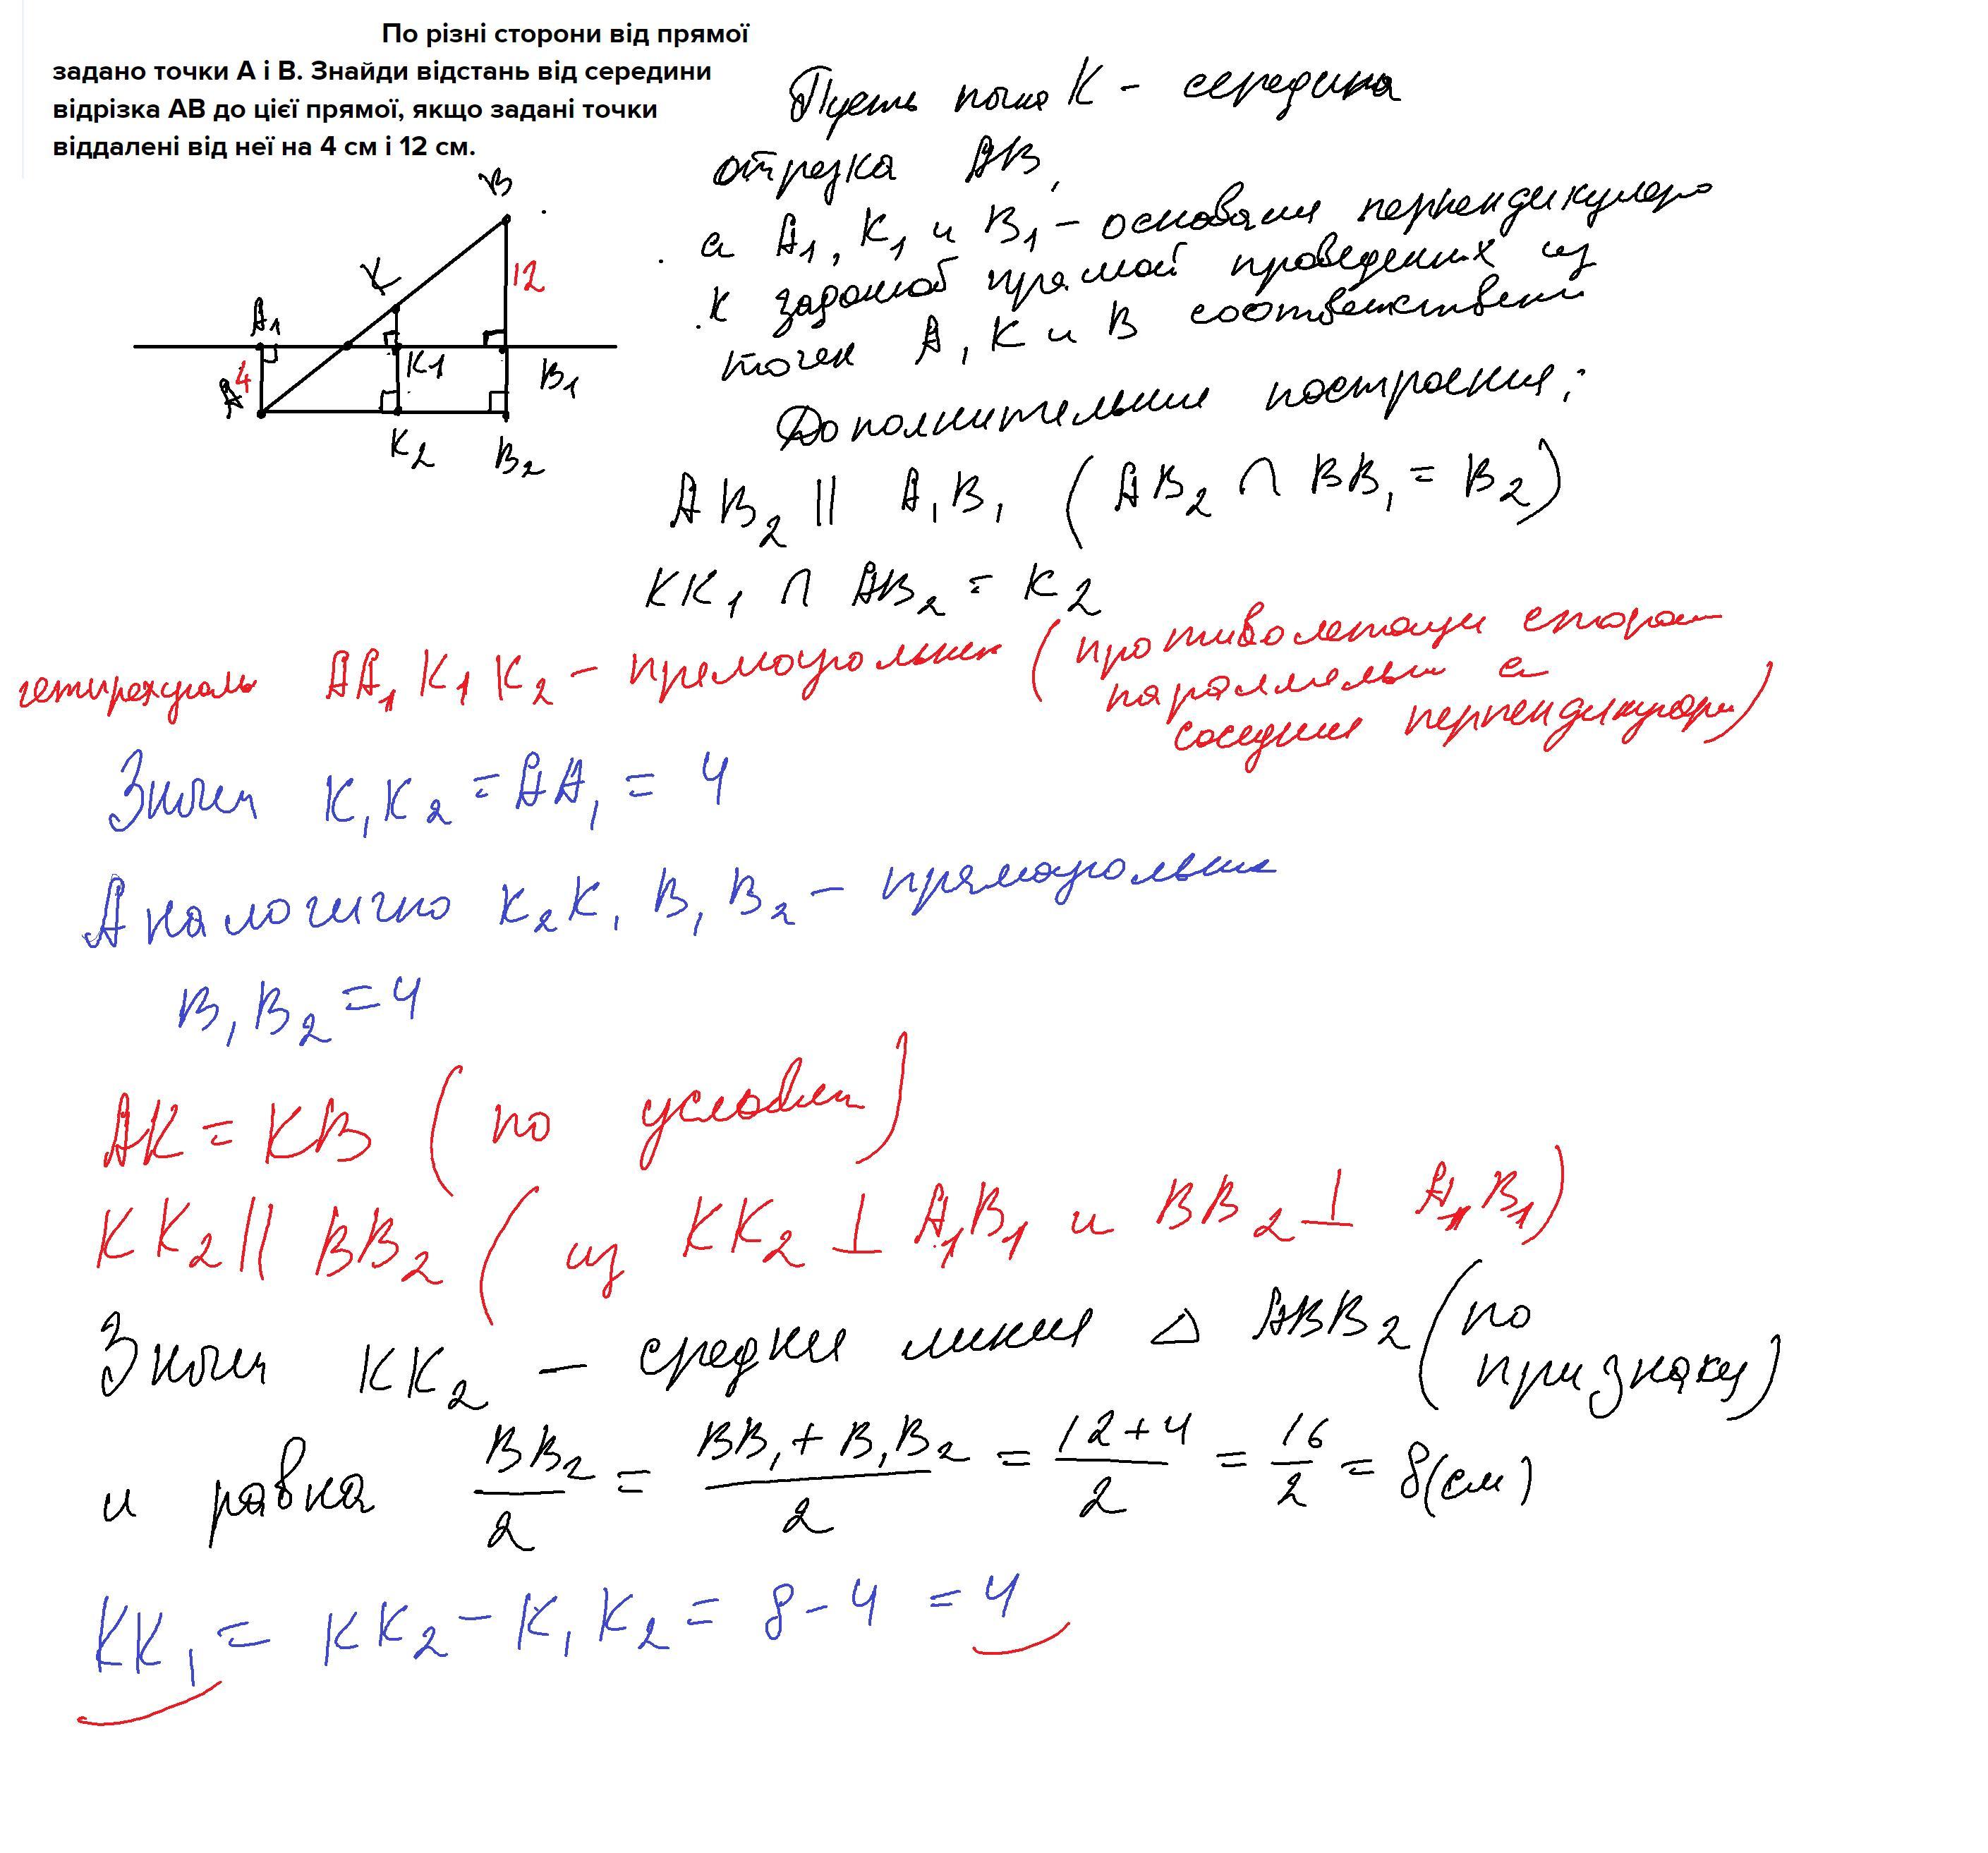 По різні сторони від прямої
задано точки А і В. Знайди відстань від середини
відрізка АВ до цієї прямої, якщо задані точки
віддалені від неї на 4 см і 12 см.
B
12
K
A1
K1
B1
4
A
K2
B2
Пусть точка K - середина
отрезка AB,
а A1, K1 и B1 - основания перпендикуляро
к заданной прямой проведенных из
точек A, K и B соответствени
Дополнительные построения:
AB2 || A1B1 (AB2 ∩ BB1 = B2)
KK1 ∩ AB2 = K2
четырехуголь AA1K1K2 - прямоугольник (противолежащи сторон
параллельны а
соседние перпендикуляри)
Значи K1K2 = AA1 = 4
Аналогично K2K1B1B2 - прямоугольник
B1B2 = 4
AK = KB (по условия)
KK2 || BB2 (из KK2 ⊥ A1B1 и BB2 ⊥ A1B1)
Значи KK2 - средняя линия △ ABB2 (по
признаку)
и равна BB2/2 = BB1 + B1B2/2 = 12+4/2 = 16/2 = 8(см)
KK1 = KK2 - K1K2 = 8 - 4 = 4